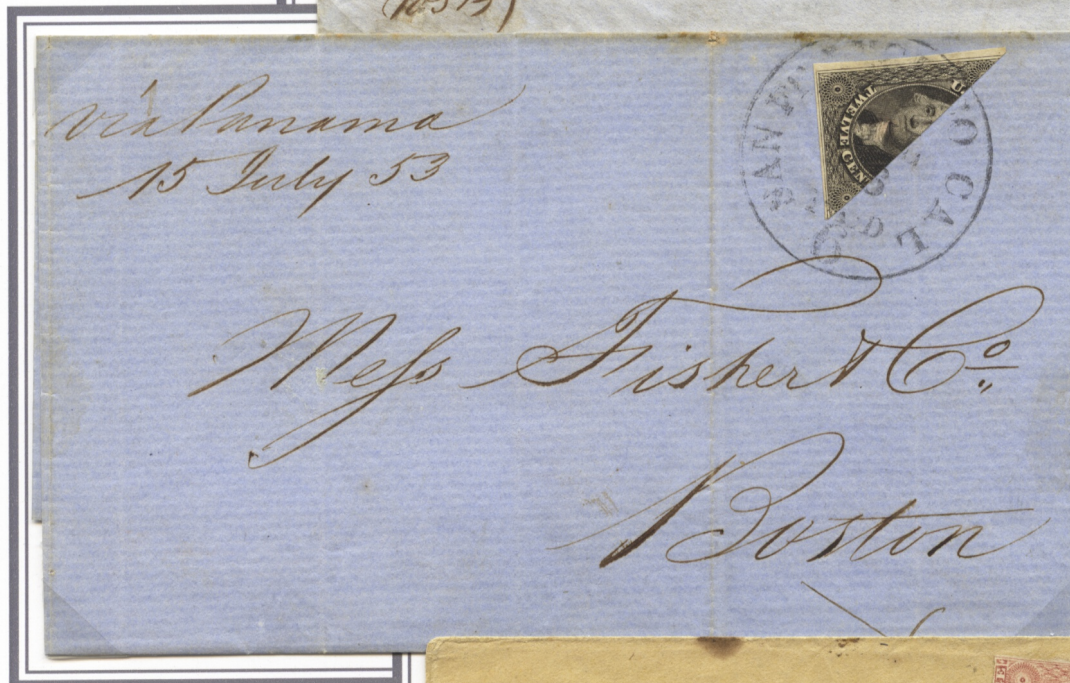 via Panama
15 July 53
SAN FRANCISCO CAL
TWELVE CEN
Mess Fisher & Co.
Boston